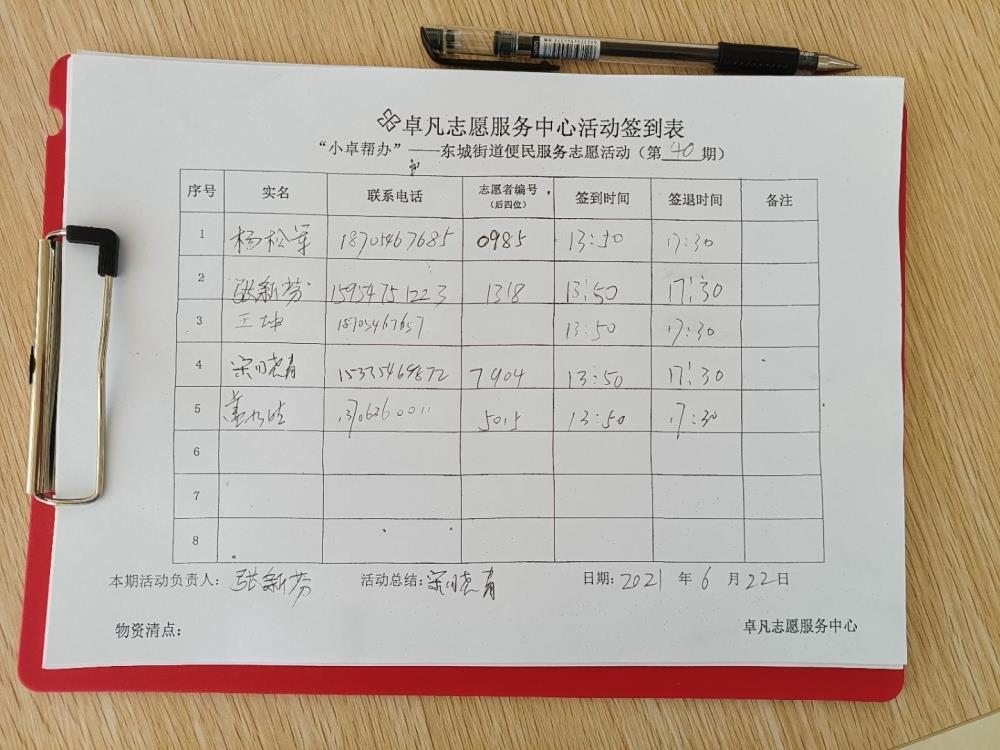 卓凡志愿服务中心活动签到表
“小卓帮办”——东城街道便民服务志愿活动（第 40 期）
序号 实名 联系电话 志愿者编号（后四位） 签到时间 签退时间 备注
1 杨松军 18705467685 0985 13:50 17:30
2 张新芬 15954751223 1318 13:50 17:30
3 王坤 18705467657 13:50 17:30
4 宋晓青 15335469872 7904 13:50 17:30
5 13706360011 5015 13:50 17:30
6
7
8
本期活动负责人： 张新芬 活动总结： 宋晓青 日期：2021 年 6 月 22 日
物资清点： 卓凡志愿服务中心